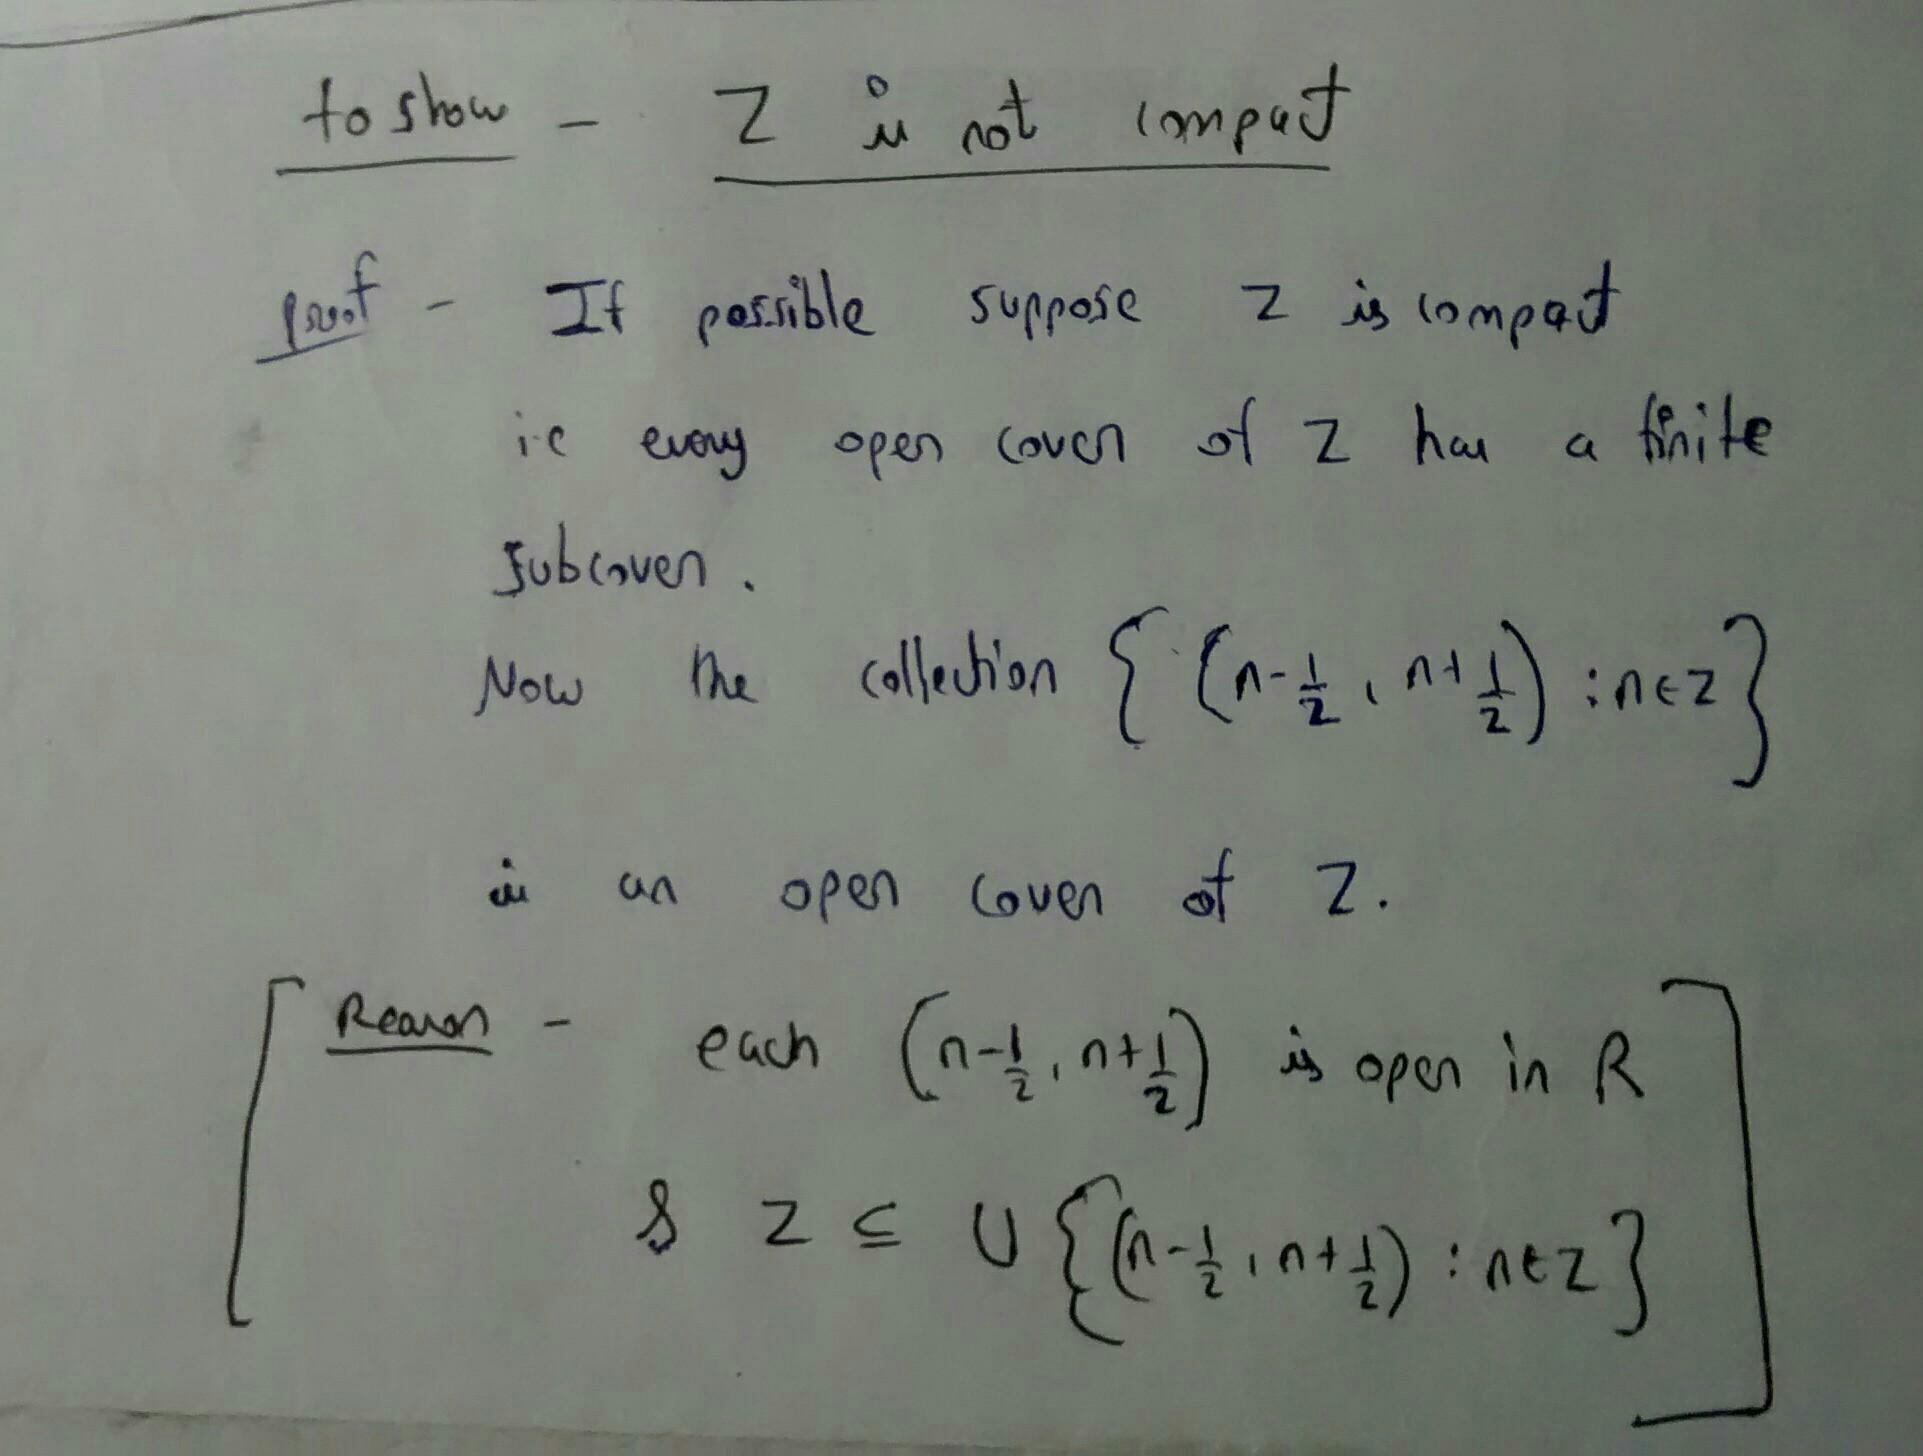 to show - Z is not compact
proof - If possible suppose Z is compact
i.e every open cover of Z has a finite
subcover.
Now the collection { (n-1/2, n+1/2) : n∈Z }
is an open cover of Z.
[ Reason - each (n-1/2, n+1/2) is open in R
& Z ⊆ ∪ { (n-1/2, n+1/2) : n∈Z } ]